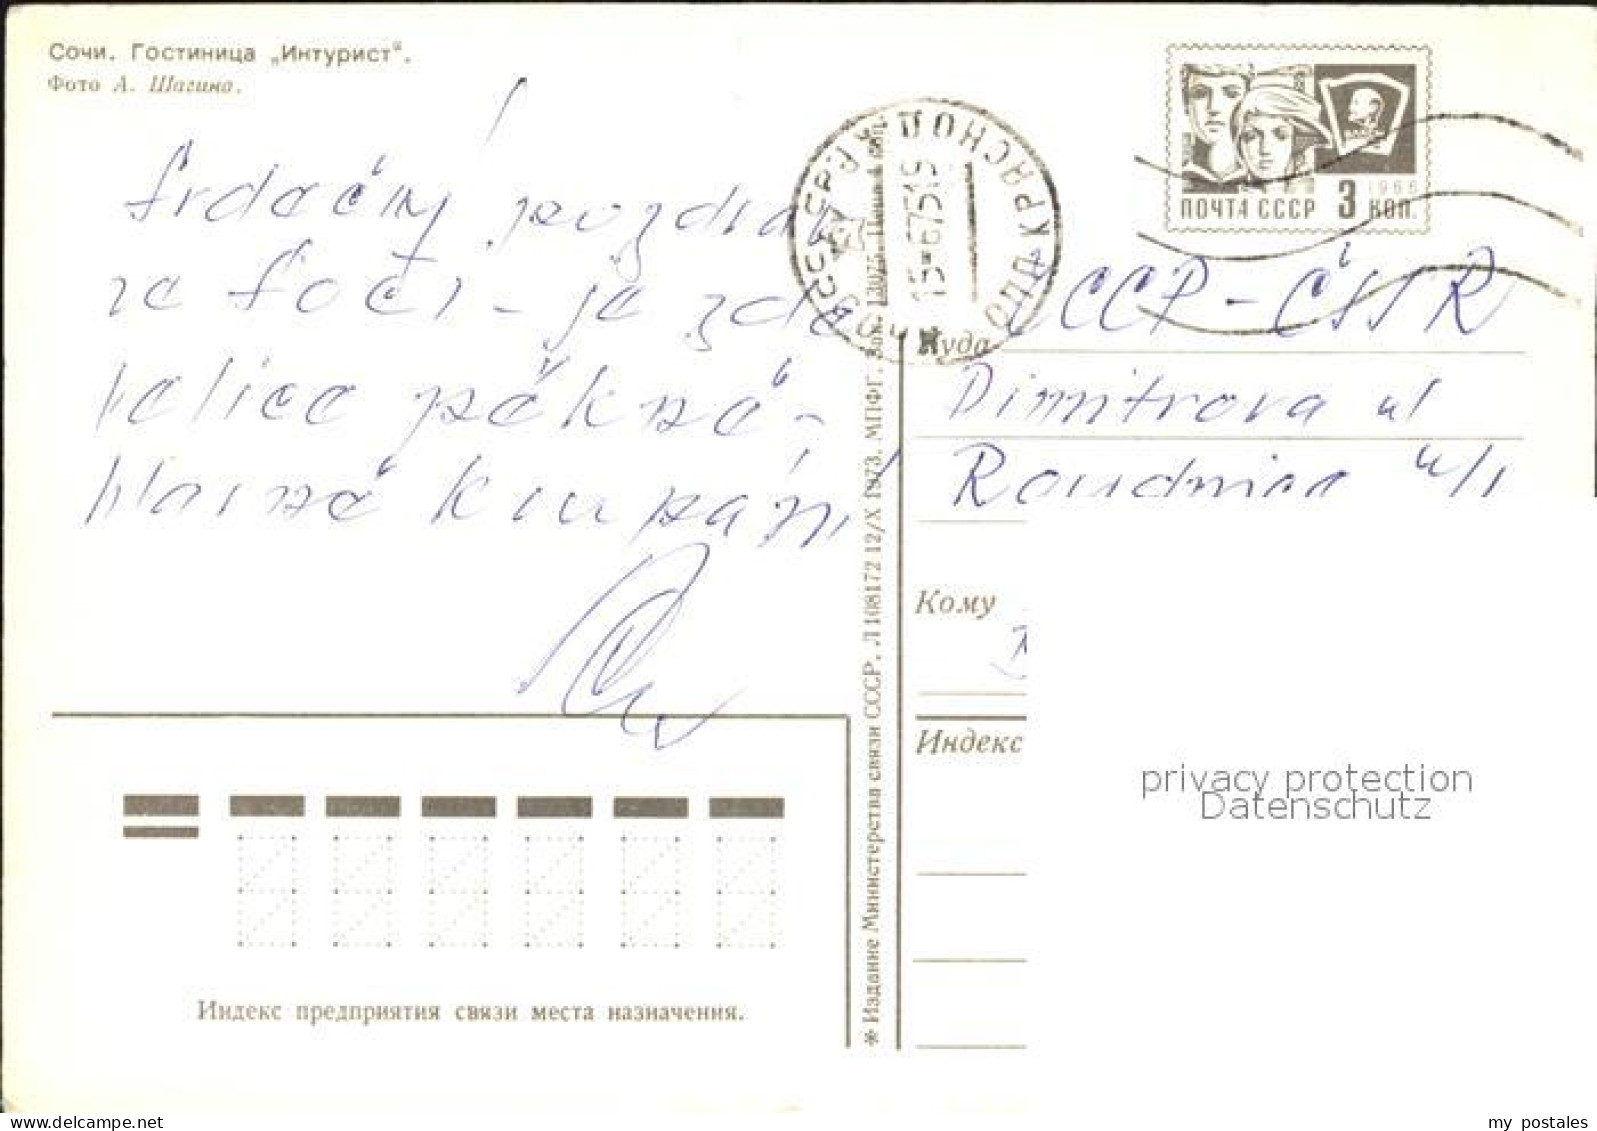 Сочи. Гостиница „Интурист“.
Фото А. Шагина.
Srdečný pozdrav
ze Soči - je zde
velice pěkně -
hlavně koupání
ПОЧТА СССР 3 КОП.
1966
15-67519
Куда СССР - ČSSR
Dimitrova ul
Roudnice n/L
Кому
Индекс
* Издание Министерства связи СССР. Л 108172 12/X 1973. МПФГ.
Индекс предприятия связи места назначения.
privacy protection
Datenschutz
my_postales